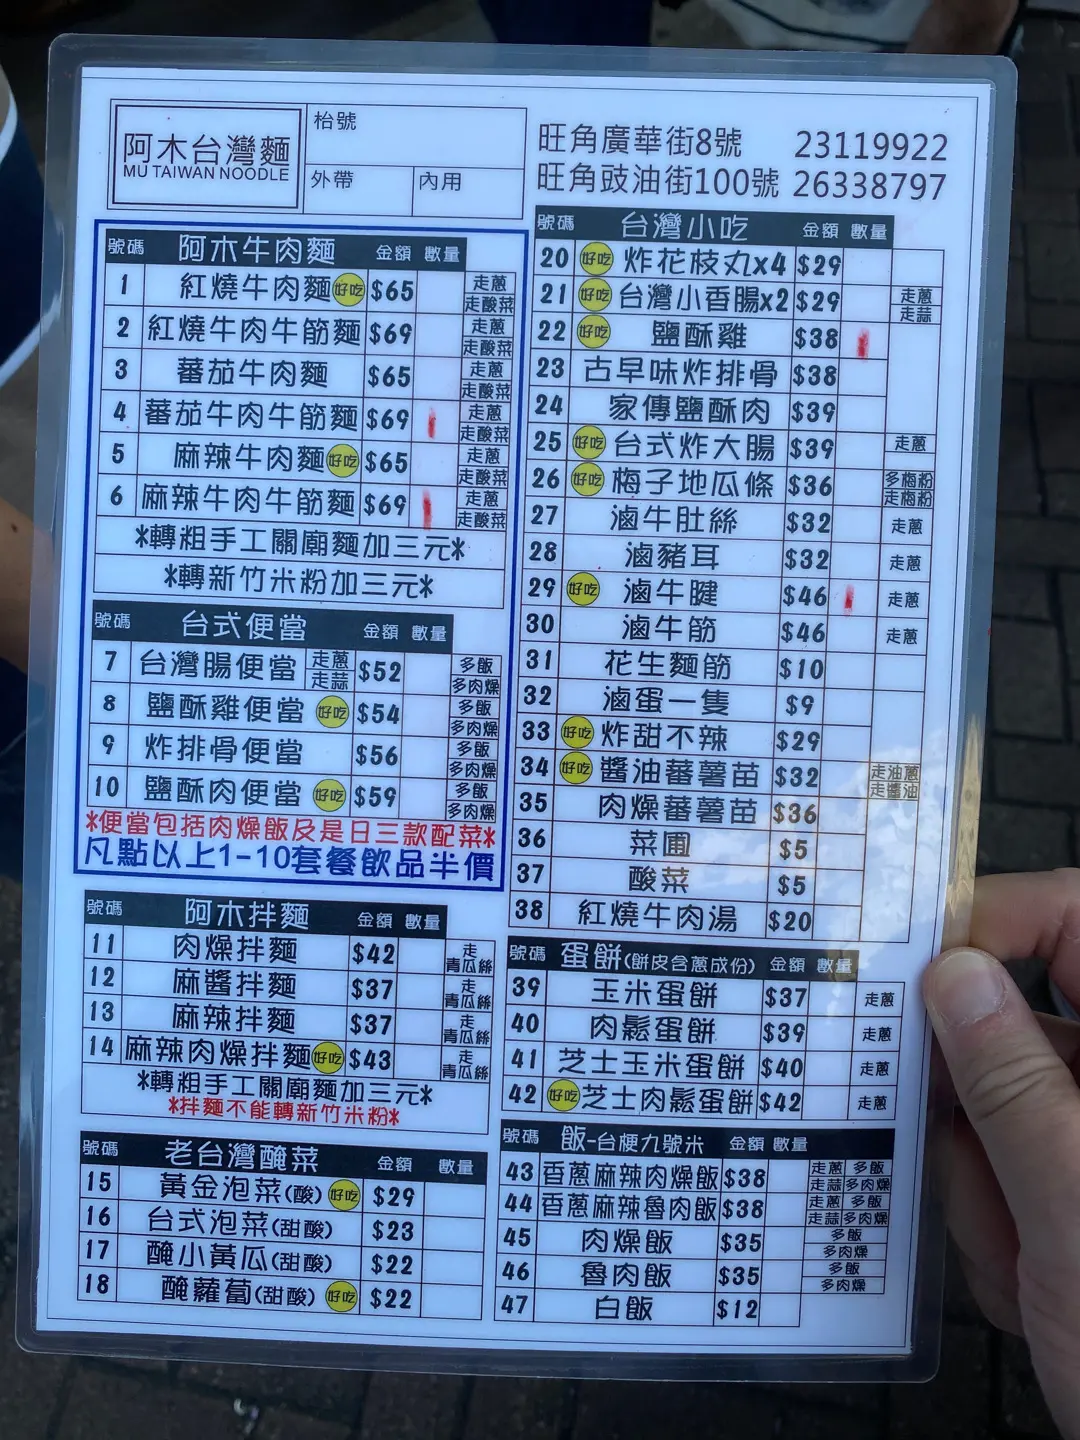 阿木台灣麵
MU TAIWAN NOODLE
枱號
外帶 內用
旺角廣華街8號 23119922
旺角豉油街100號 26338797
號碼 阿木牛肉麵 金額 數量
1 紅燒牛肉麵 好吃 $65 走蔥 走酸菜
2 紅燒牛肉牛筋麵 $69 走蔥 走酸菜
3 蕃茄牛肉麵 $65 走蔥 走酸菜
4 蕃茄牛肉牛筋麵 $69 走蔥 走酸菜
5 麻辣牛肉麵 好吃 $65 走蔥 走酸菜
6 麻辣牛肉牛筋麵 $69 走蔥 走酸菜
*轉粗手工關廟麵加三元*
*轉新竹米粉加三元*
號碼 台式便當 金額 數量
7 台灣腸便當 走蔥 走蒜 $52 多飯 多肉燥
8 鹽酥雞便當 好吃 $54 多飯 多肉燥
9 炸排骨便當 $56 多飯 多肉燥
10 鹽酥肉便當 好吃 $59 多飯 多肉燥
*便當包括肉燥飯及是日三款配菜*
凡點以上1-10套餐飲品半價
號碼 阿木拌麵 金額 數量
11 肉燥拌麵 $42 走青瓜絲
12 麻醬拌麵 $37 走青瓜絲
13 麻辣拌麵 $37 走青瓜絲
14 麻辣肉燥拌麵 好吃 $43 走青瓜絲
*轉粗手工關廟麵加三元*
*拌麵不能轉新竹米粉*
號碼 老台灣醃菜 金額 數量
15 黃金泡菜(酸) 好吃 $29
16 台式泡菜(甜酸) $23
17 醃小黃瓜(甜酸) $22
18 醃蘿蔔(甜酸) 好吃 $22
號碼 台灣小吃 金額 數量
20 好吃 炸花枝丸x4 $29
21 好吃 台灣小香腸x2 $29 走蔥 走蒜
22 好吃 鹽酥雞 $38
23 古早味炸排骨 $38
24 家傳鹽酥肉 $39
25 好吃 台式炸大腸 $39 走蔥
26 好吃 梅子地瓜條 $36 多梅粉 走梅粉
27 滷牛肚絲 $32 走蔥
28 滷豬耳 $32 走蔥
29 好吃 滷牛腱 $46 走蔥
30 滷牛筋 $46 走蔥
31 花生麵筋 $10
32 滷蛋一隻 $9
33 好吃 炸甜不辣 $29
34 好吃 醬油蕃薯苗 $32 走油蔥 走醬油
35 肉燥蕃薯苗 $36
36 菜圃 $5
37 酸菜 $5
38 紅燒牛肉湯 $20
號碼 蛋餅(餅皮含蔥成份) 金額 數量
39 玉米蛋餅 $37 走蔥
40 肉鬆蛋餅 $39 走蔥
41 芝士玉米蛋餅 $40 走蔥
42 好吃 芝士肉鬆蛋餅 $42 走蔥
號碼 飯-台梗九號米 金額 數量
43 香蔥麻辣肉燥飯 $38 走蔥 多飯 走蒜 多肉燥
44 香蔥麻辣魯肉飯 $38 走蔥 多飯 走蒜 多肉燥
45 肉燥飯 $35 多飯 多肉燥
46 魯肉飯 $35 多飯 多肉燥
47 白飯 $12